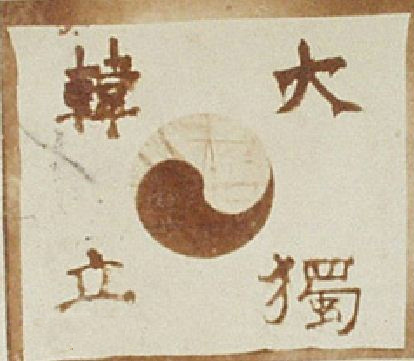 大韓
獨立